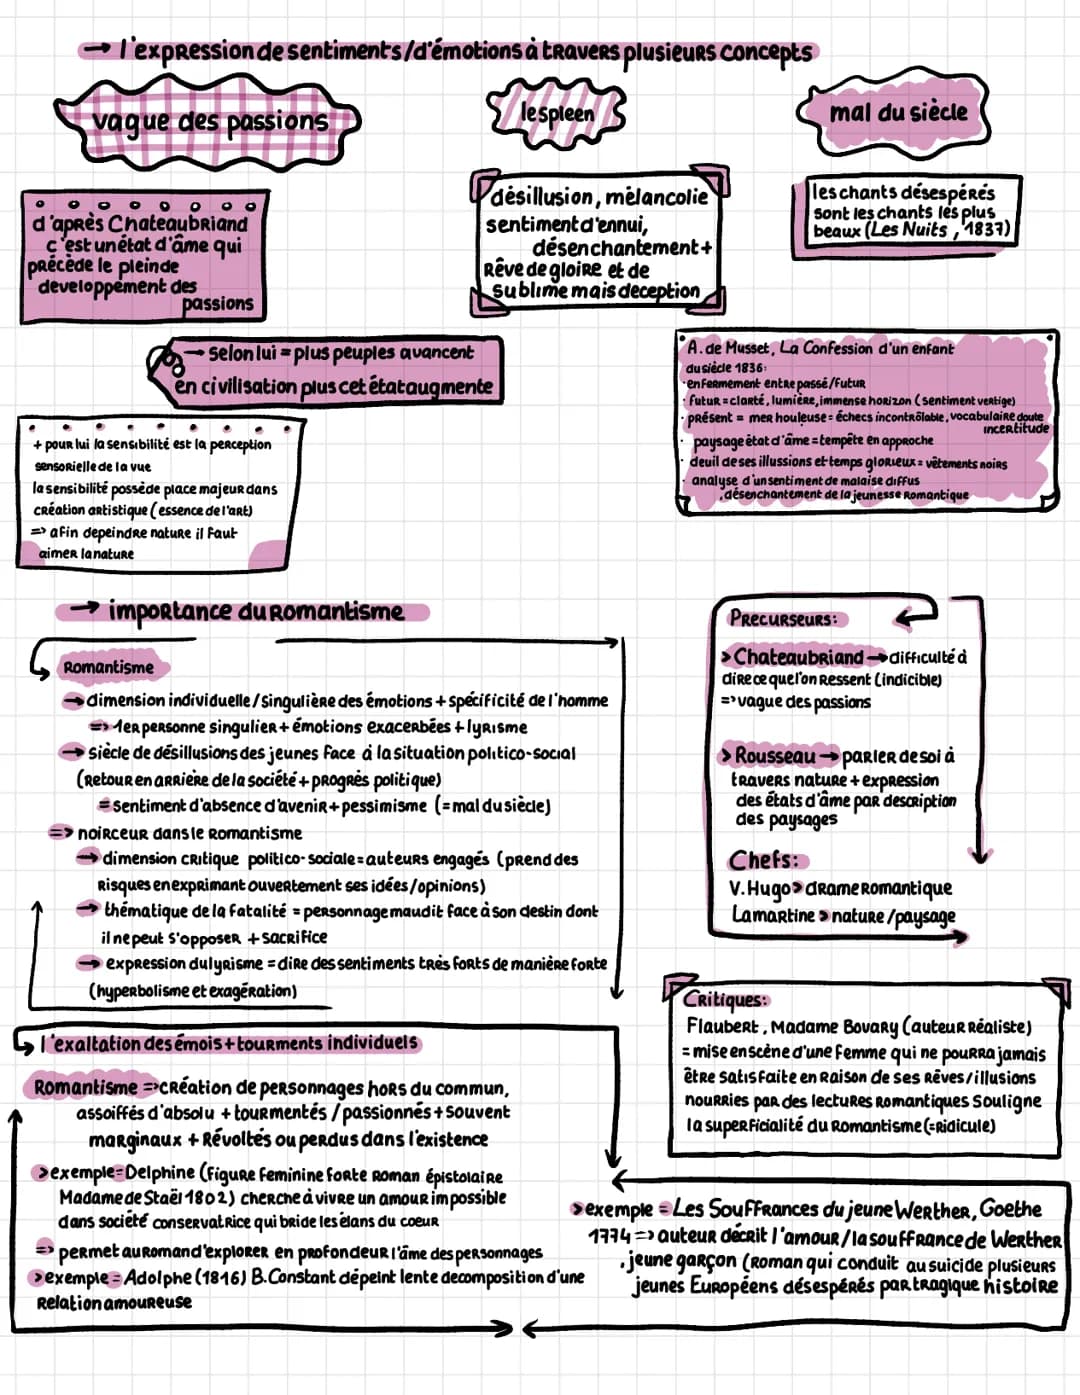 → l'expression de sentiments/d'émotions à travers plusieurs concepts
vague des passions
le spleen
mal du siècle
d'après Chateaubriand
c'est un état d'âme qui
précède le plein de
developpement des
passions
désillusion, mélancolie
sentiment d'ennui,
désenchantement +
Rêve de gloire et de
sublime mais deception
les chants désespérés
sont les chants les plus
beaux (Les Nuits, 1837)
→ selon lui = plus peuples avancent
en civilisation plus cet état augmente
+ pour lui la sensibilité est la perception
sensorielle de la vue
la sensibilité possède place majeur dans
création artistique (essence de l'art)
=> afin depeindre nature il faut
aimer la nature
A. de Musset, La Confession d'un enfant
du siècle 1836:
· enfermement entre passé/futur
· futur = clarté, lumière, immense horizon (sentiment vertige)
· présent = mer houleuse = échecs incontrôlable, vocabulaire doute
incertitude
· paysage état d'âme = tempête en approche
· deuil de ses illussions et temps glorieux = vêtements noirs
· analyse d'un sentiment de malaise diffus
. désenchantement de la jeunesse Romantique
→ importance du Romantisme
Romantisme
→ dimension individuelle/singulière des émotions + spécificité de l'homme
=> 1er personne singulier + émotions exacerbées + lyrisme
→ siècle de désillusions des jeunes face à la situation politico-social
(Retour en arrière de la société + progrès politique)
= sentiment d'absence d'avenir + pessimisme (= mal du siècle)
=> noirceur dans le Romantisme
→ dimension critique politico-sociale = auteurs engagés (prend des
risques en exprimant ouvertement ses idées/opinions)
→ thématique de la fatalité = personnage maudit face à son destin dont
il ne peut s'opposer + sacrifice
→ expression du lyrisme = dire des sentiments très forts de manière forte
(hyperbolisme et exagération)
Precurseurs:
> Chateaubriand → difficulté à
dire ce quel'on Ressent (indicible)
=> vague des passions
> Rousseau → parler de soi à
travers nature + expression
des états d'âme par description
des paysages
Chefs:
V. Hugo > drame Romantique
Lamartine > nature/paysage
Critiques:
Flaubert, Madame Bovary (auteur Réaliste)
= mise en scène d'une femme qui ne pourra jamais
être satisfaite en raison de ses Rêves/illusions
nourries par des lectures Romantiques Souligne
la superficialité du Romantisme (=Ridicule)
l'exaltation des émois + tourments individuels
Romantisme => création de personnages hors du commun,
assoiffés d'absolu + tourmentés / passionnés + souvent
marginaux + Révoltés ou perdus dans l'existence
> exemple = Delphine (figure feminine forte roman épistolaire
Madame de Staël 1802) cherche à vivre un amour impossible
dans société conservatrice qui bride les élans du coeur
=> permet au Roman d'explorer en profondeur l'âme des personnages
> exemple = Adolphe (1816) B. Constant dépeint lente decomposition d'une
Relation amoureuse
> exemple = Les Souffrances du jeune Werther, Goethe
1774 => auteur décrit l'amour/la souffrance de Werther
. jeune garçon (Roman qui conduit au suicide plusieurs
jeunes Européens désespérés par tragique histoire